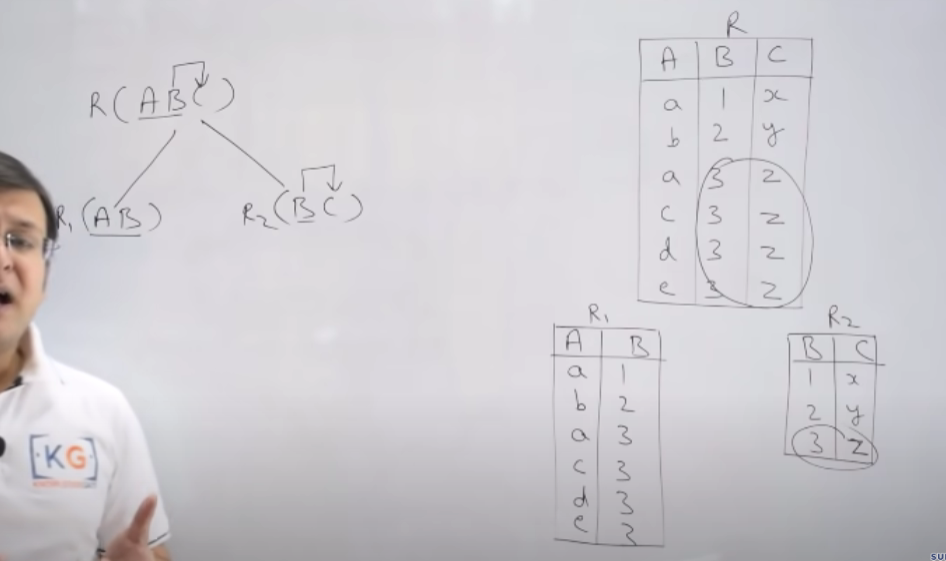 R(ABC)
R₁(AB)
R₂(BC)
R
A B C
a 1 x
b 2 y
a 3 z
c 3 z
d 3 z
e 3 z
R₁
A B
a 1
b 2
a 3
c 3
d 3
e 3
R₂
B C
1 x
2 y
3 z
KG